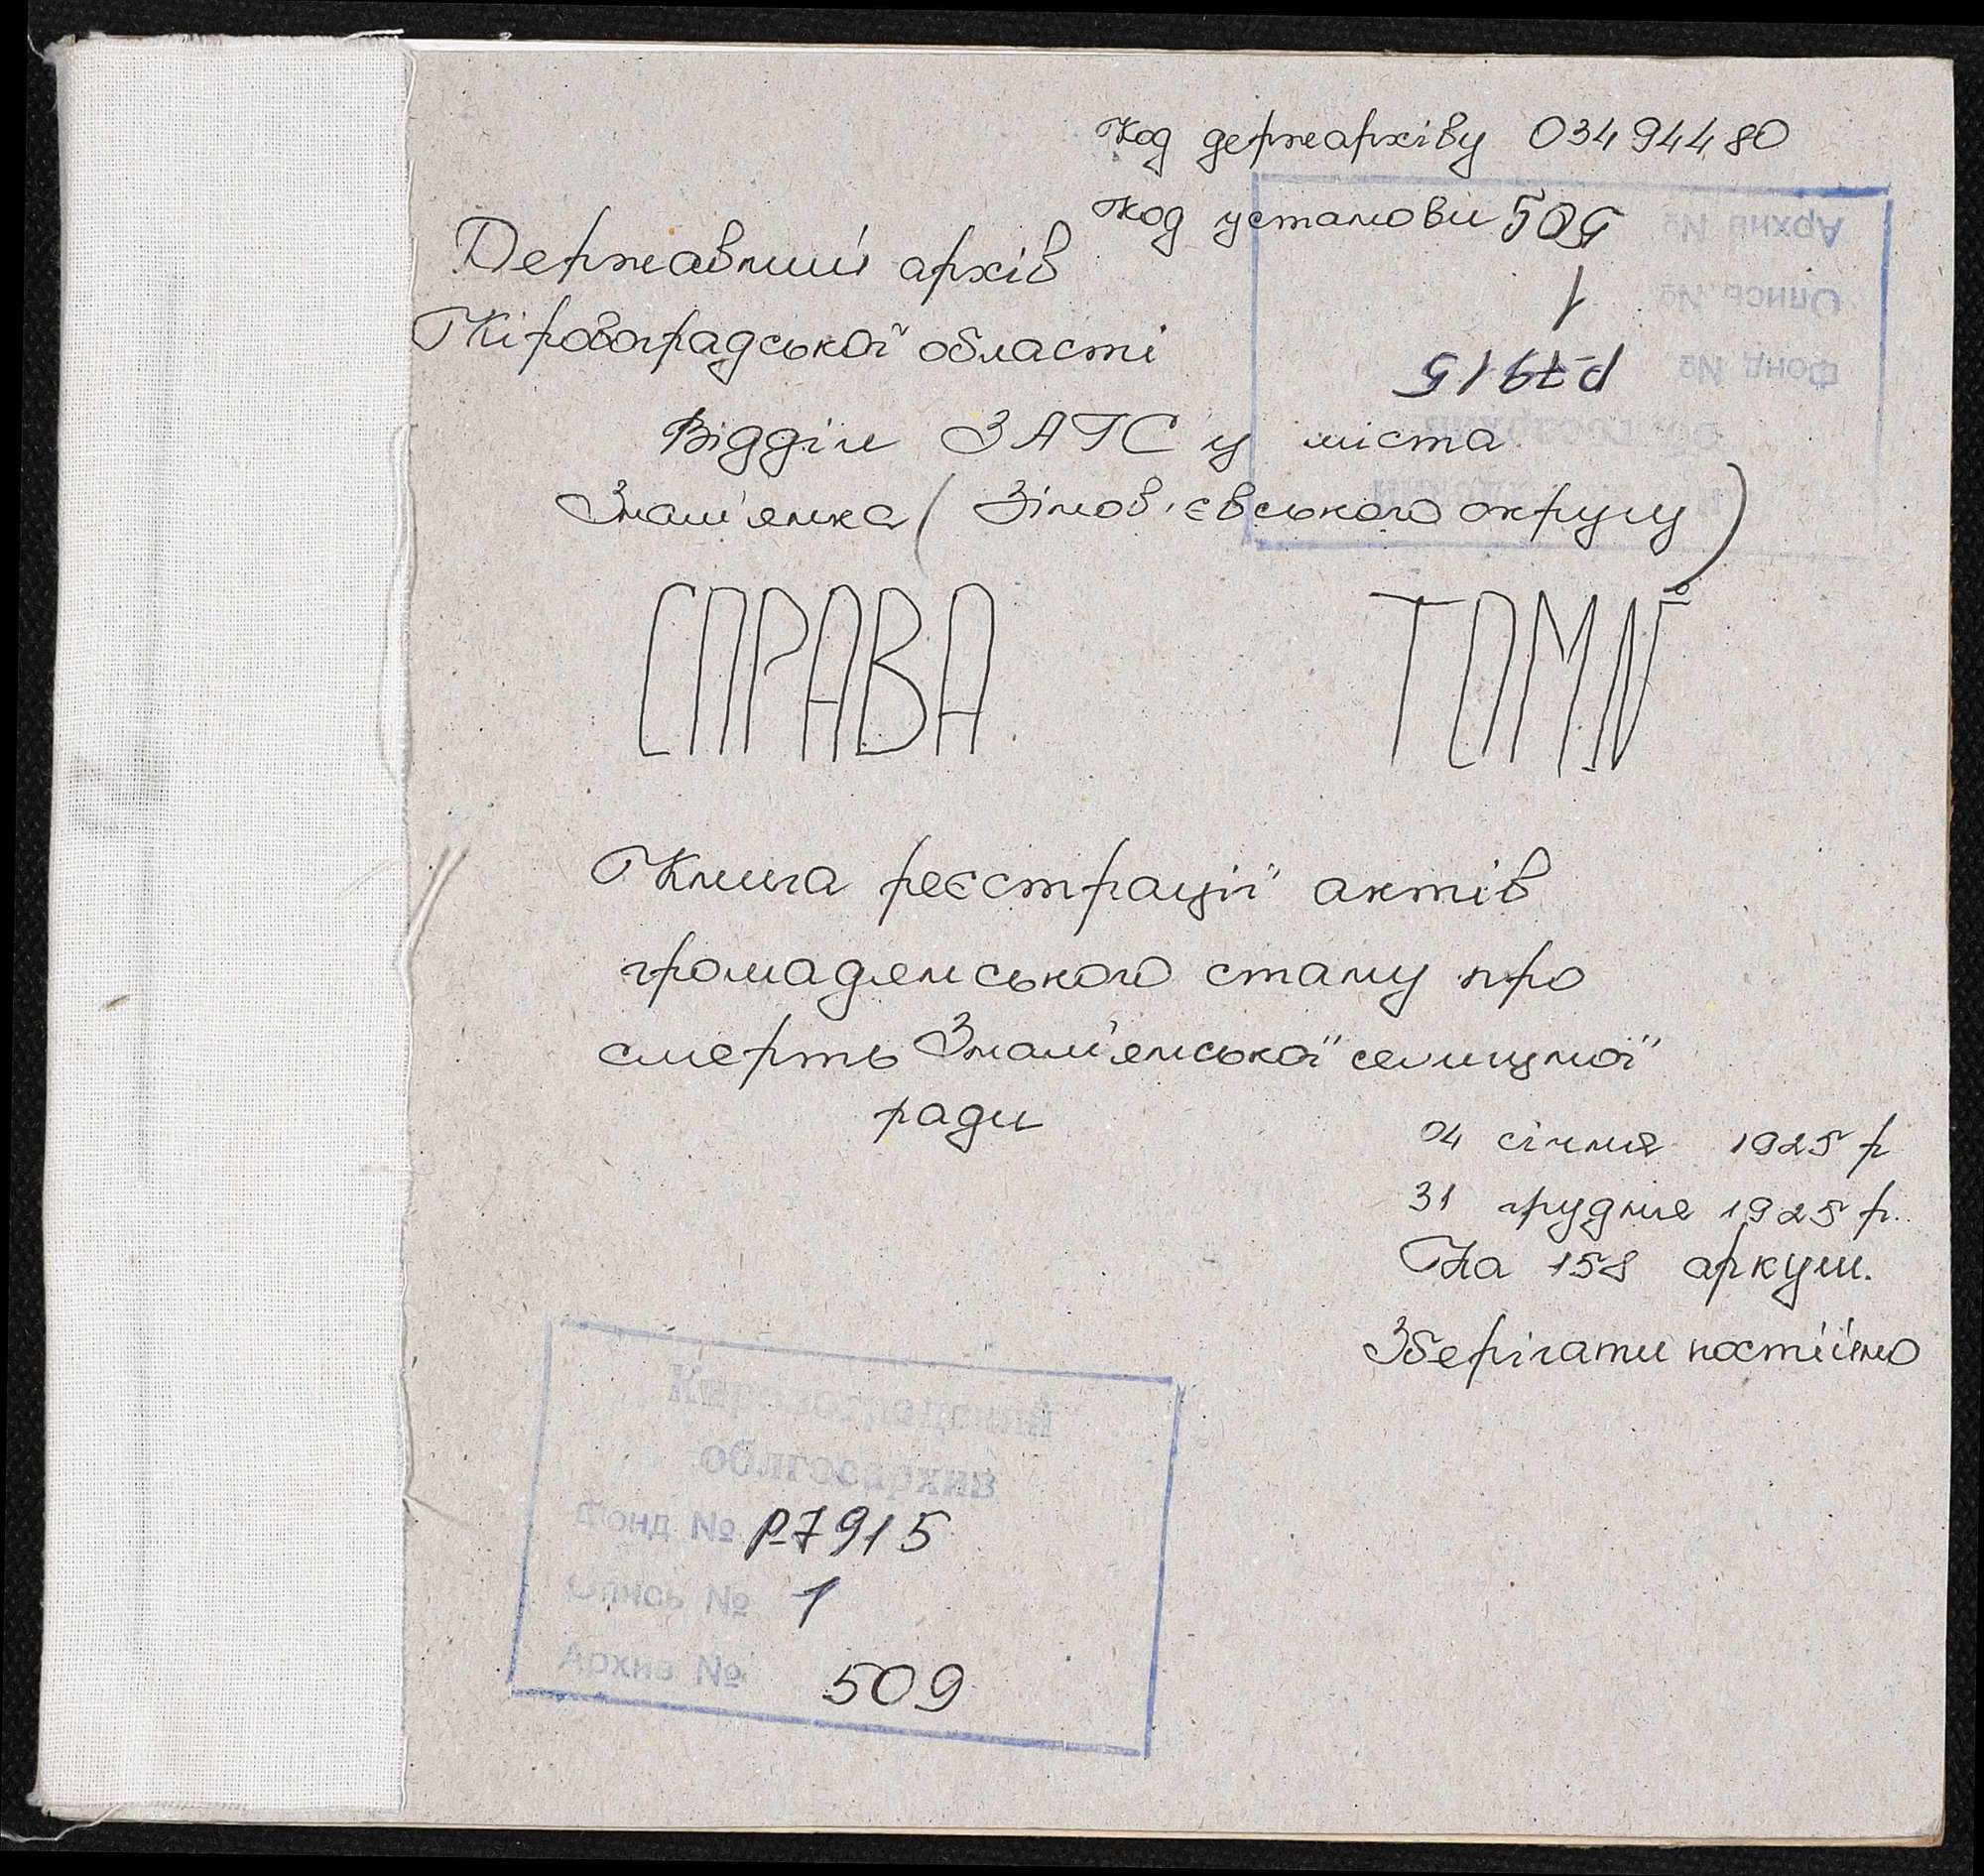 Код держархіву 03494480
Код установи
Державний архів
Кіровоградської області
Архив № 509
Опись № 1
Фонд № Р-7915
Відділ ЗАГСу міста
Знам'янка (Зінов'євського округу)
СПРАВА ТОМ №
Книга реєстрації актів
громадянського стану про
смерть Знам'янської селищної
ради
04 січня 1925 р
31 грудня 1925 р.
На 158 аркуш.
Зберігати постійно
Кировоградский
облгосархив
Фонд № Р-7915
Опись № 1
Архив № 509